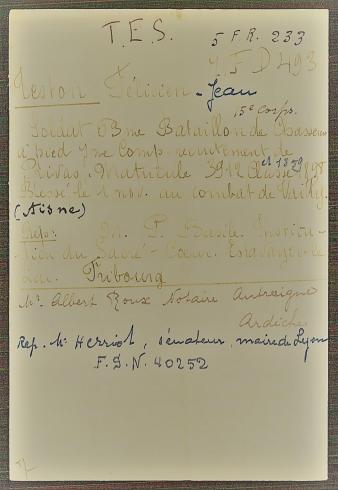 T.E.S.
5 F.R. 233
Y.F.D 493
Teston Félicien - Jean
15e Corps.
Soldat 63me Bataillon de Chasseurs
à pied 7me Comp. recrutement de
Privas. Matricule 3912 Classe 1898 et 1879
Blessé le 1 nov. au combat de Vailly.
(Aisne)
Rep: P. Basile. Institu-
tion du Sacré-Coeur. Estavayer-le
Lac. Fribourg
Mr. Albert Roux Notaire Antraigue
Ardèche.
Rep. Mr Herriot, sénateur, maire de Lyon
F.S.N. 40252